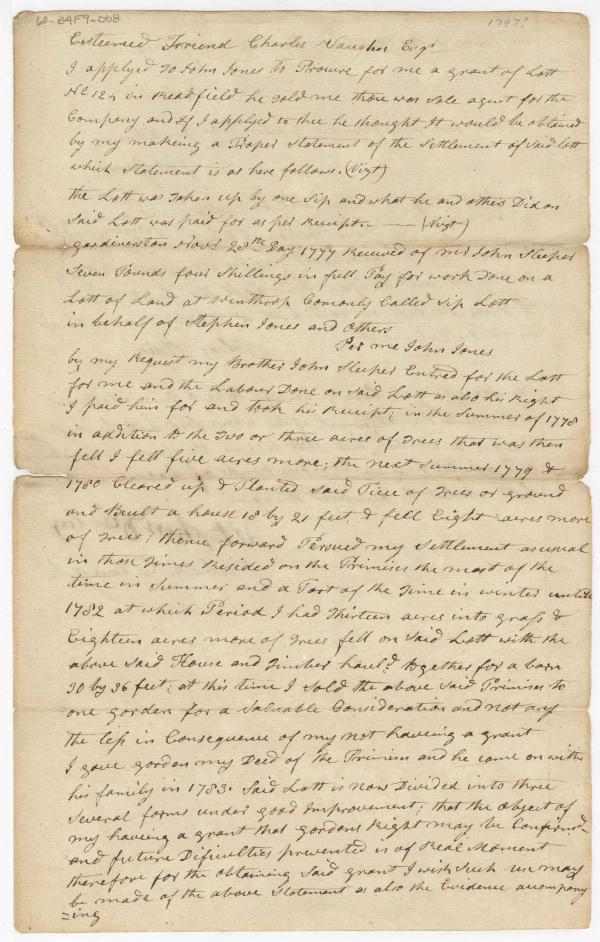 60-B4F9-008
1797?
Esteemed Friend Charles Vaughn Esqr
I applyed To John Jones to Procure for me a grant of Lott
No 124 in Readfield he Told me thou was Sole agent for the
Company and If I applyd to thee he thought It would be obtained
by my making a Proper Statement of the Settlement of Said lott
which Statement is as here follows. (Vizt)
the Lott was Taken up by one Sip and what he and others Did on
Said Lott was paid for as per Receipt. — (Vizt)
gardinerston Novr 28th Day 1777 Received of mr John Sleeper
Seven Pounds four Shillings in full Pay for work Done on a
Lott of Land at Winthrop Comonly Called Sip Lott
in behalf of Stephen Jones and others
Per me John Jones
by my Request my Brother John Sleeper Entred for the Lott
for me and the Labour Done on Said Lott as also his Right
I paid him for and took his Receipt; in the Summer of 1778
in addition to the Two or three acres of Trees that was then
fell I fell five acres more; the next Summer 1779 &
1780 Cleared up & Planted Said Piece of Trees or ground
and Built a house 18 by 21 feet & fell Eight acres more
of Trees; thence forward Persued my Settlement as usual
in those Times Resided on the Primises the most of the
time in Summer and a Part of the Time in winter untill
1782 at which Period I had Thirteen acres into grass &
Eighteen acres more of Trees fell on Said Lott with the
above Said House and Timber hauld together for a barn
30 by 36 feet; at this time I Sold the above Said Primises to
one gorden for a Valuable Consideration and not any
the less in Consequence of my not haveing a grant
I gave gorden my Deed of the Primises and he came on with
his family in 1783. Said Lott is now Divided into three
Several farms under good Improvement; that the object of
my having a grant that gordons Right may be Confirmd
and future Dificulties prevented is of Real Moment
therefore for the obtaining Said grant I wish Such use may
be made of the above Statement as also the Evidence accompany
=ing